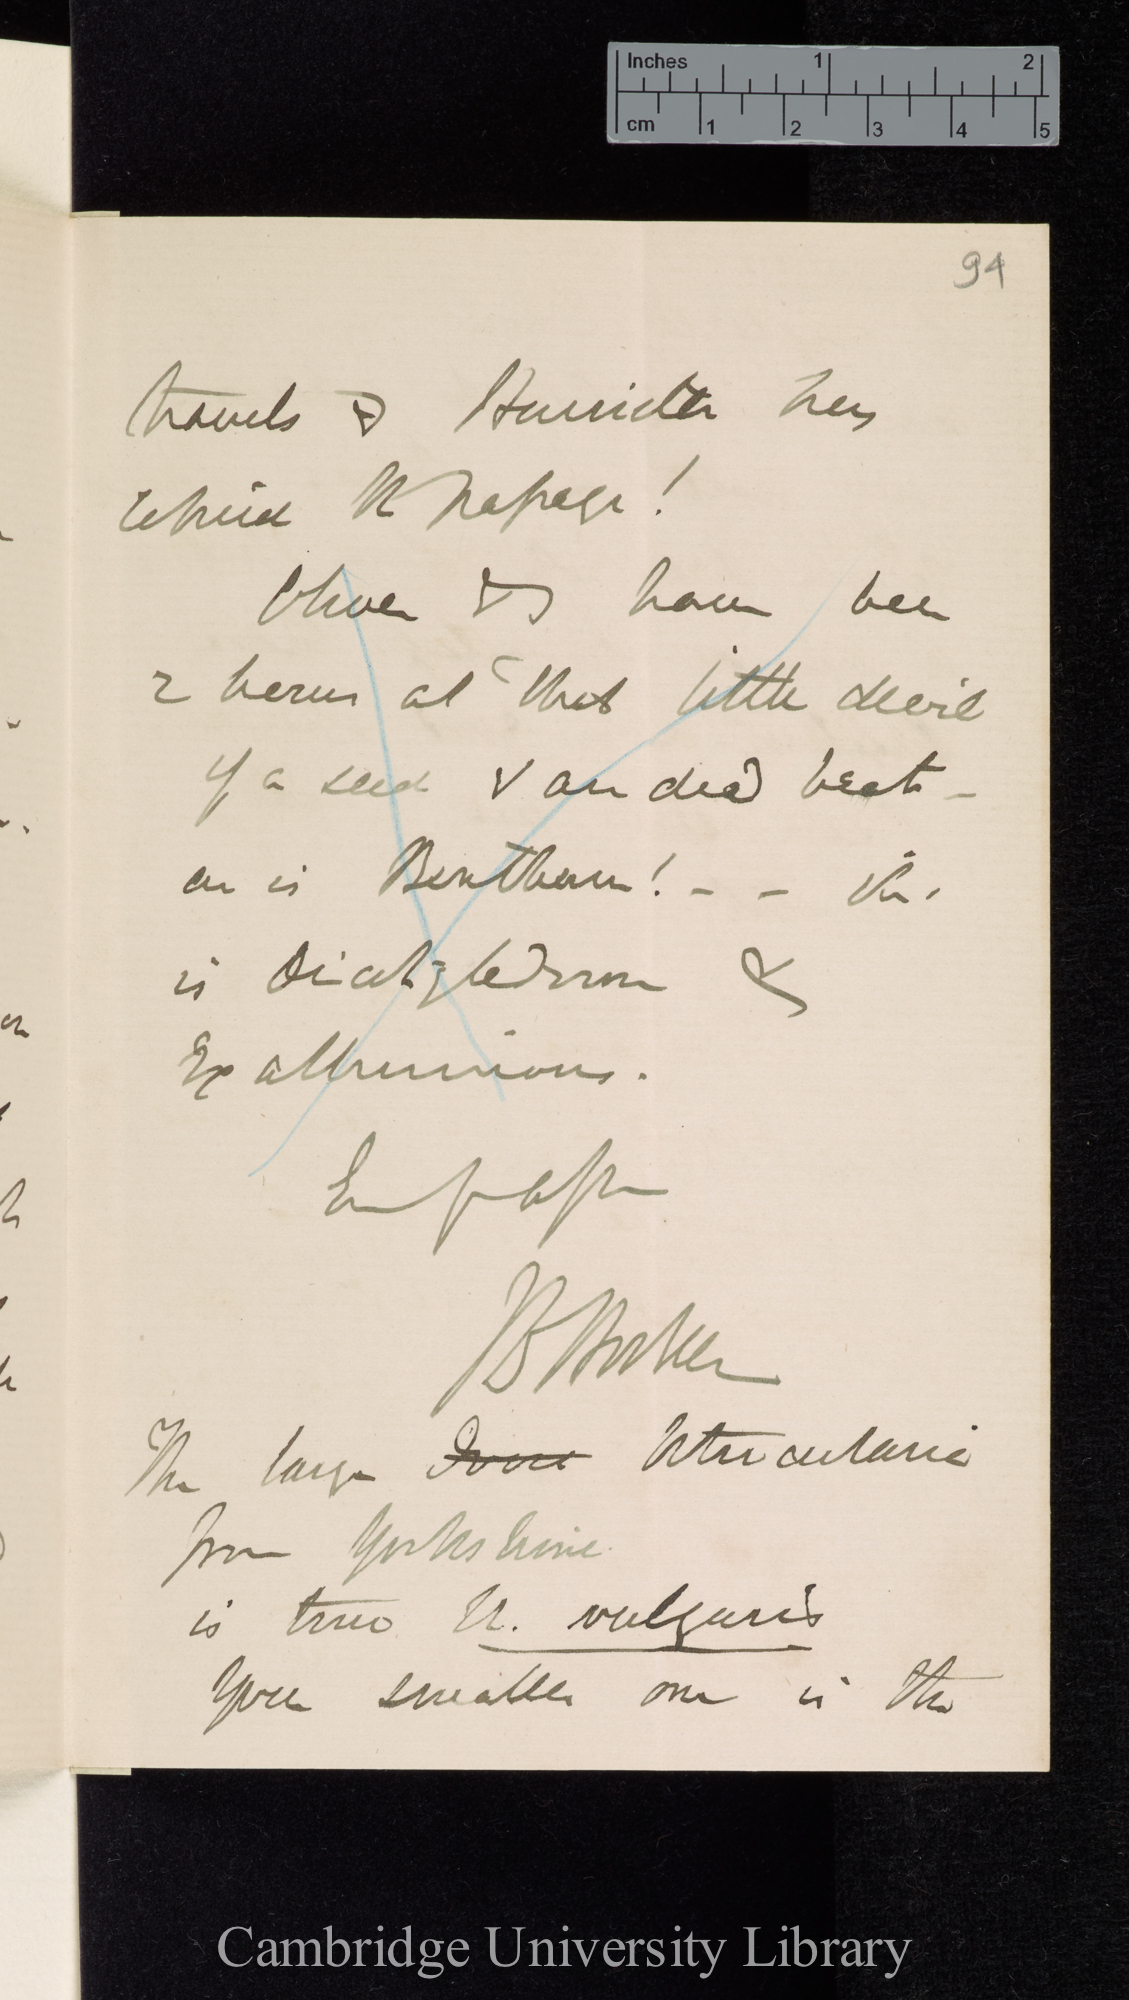 Inches 1 2
cm 1 2 3 4 5
94
travels & Henrietta has
the passage!
Oliver & I have been
2 hours at that little devil
of a seed & are dead beat —
as is Bentham! — — It
is Dicotyledonous &
Exalbuminous.
En passant
JDHooker
The large Utricularia
from Yorkshire
is true U. vulgaris
Your smaller one is the
Cambridge University Library